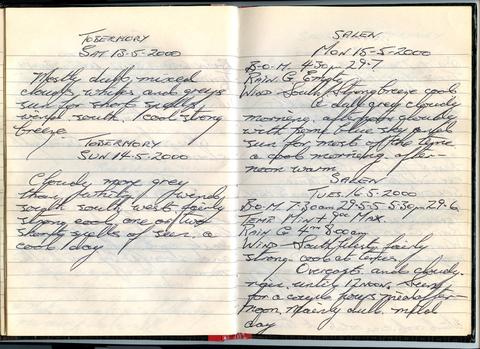 TOBERMORY
SAT 13-5-2000
Mostly dull, mixed
clouds, whites and greys
sun for short spells,
wind south, cool strong
breeze
TOBERMORY
SUN 14-5-2000
Cloudy more grey
than white. windy
south south west fairly
strong cool one or two
short spells of sun. a
cool day
SALEN
MON 15-5-2000
B-O-M. 4-30pm 29-7
RAIN G Empty
WIND - South, strong breeze cool
A dull grey cloudy
morning. afternoon cloudy
with some blue sky and
sun for most of the time
a cool morning. after-
noon warm
SALEN
TUES 16-5-2000
B.O.M. 7-30am 29-5-5 5-30pm 29-6
TEMP MIN + 9oc MAX
RAIN G 4mm 8.00am
WIND - South West fairly
strong - cool at times
Overcast and cloudy.
until 12 NOON.
for a couple hours mid after-
noon. Mainly dull. mild
day